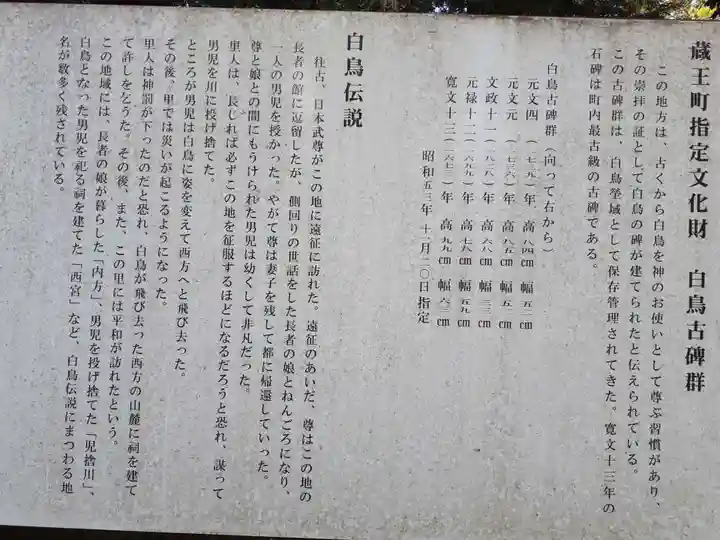 蔵王町指定文化財　白鳥古碑群
この地方は、古くから白鳥を神のお使いとして尊ぶ習慣があり、
その崇拝の証として白鳥の碑が建てられたと伝えられている。
この古碑群は、白鳥塋域として保存管理されてきた。寛文十三年の
石碑は町内最古級の古碑である。
白鳥古碑群（向って右から）
元文四（一七三九）年　高八四㎝　幅五二㎝
元文元（一七三六）年　高八五㎝　幅五一㎝
文政十一（一八二八）年　高六八㎝　幅三三㎝
元禄十二（一六九九）年　高七六㎝　幅五九㎝
寛文十三（一六七三）年　高九九㎝　幅六〇㎝
昭和五三年　十一月二〇日指定
白鳥伝説
往古、日本武尊がこの地に遠征に訪れた。遠征のあいだ、尊はこの地の
長者の館に逗留したが、側回りの世話をした長者の娘とねんごろになり、
一人の男児を授かった。やがて尊は妻子を残して都に帰還していった。
尊と娘との間にもうけられた男児は幼くして非凡だった。
里人は、長じれば必ずこの地を征服するほどになるだろうと恐れ、謀って
男児を川に投げ捨てた。
ところが男児は白鳥に姿を変えて西方へと飛び去った。
その後、里では災いが起こるようになった。
里人は神罰が下ったのだと恐れ、白鳥が飛び去った西方の山麓に祠を建て
て許しを乞うた。その後、また、この里には平和が訪れたという。
この地域には、長者の娘が暮らした「内方」、男児を投げ捨てた「児捨川」、
白鳥となった男児を祀る祠を建てた「西宮」など、白鳥伝説にまつわる地
名が数多く残されている。